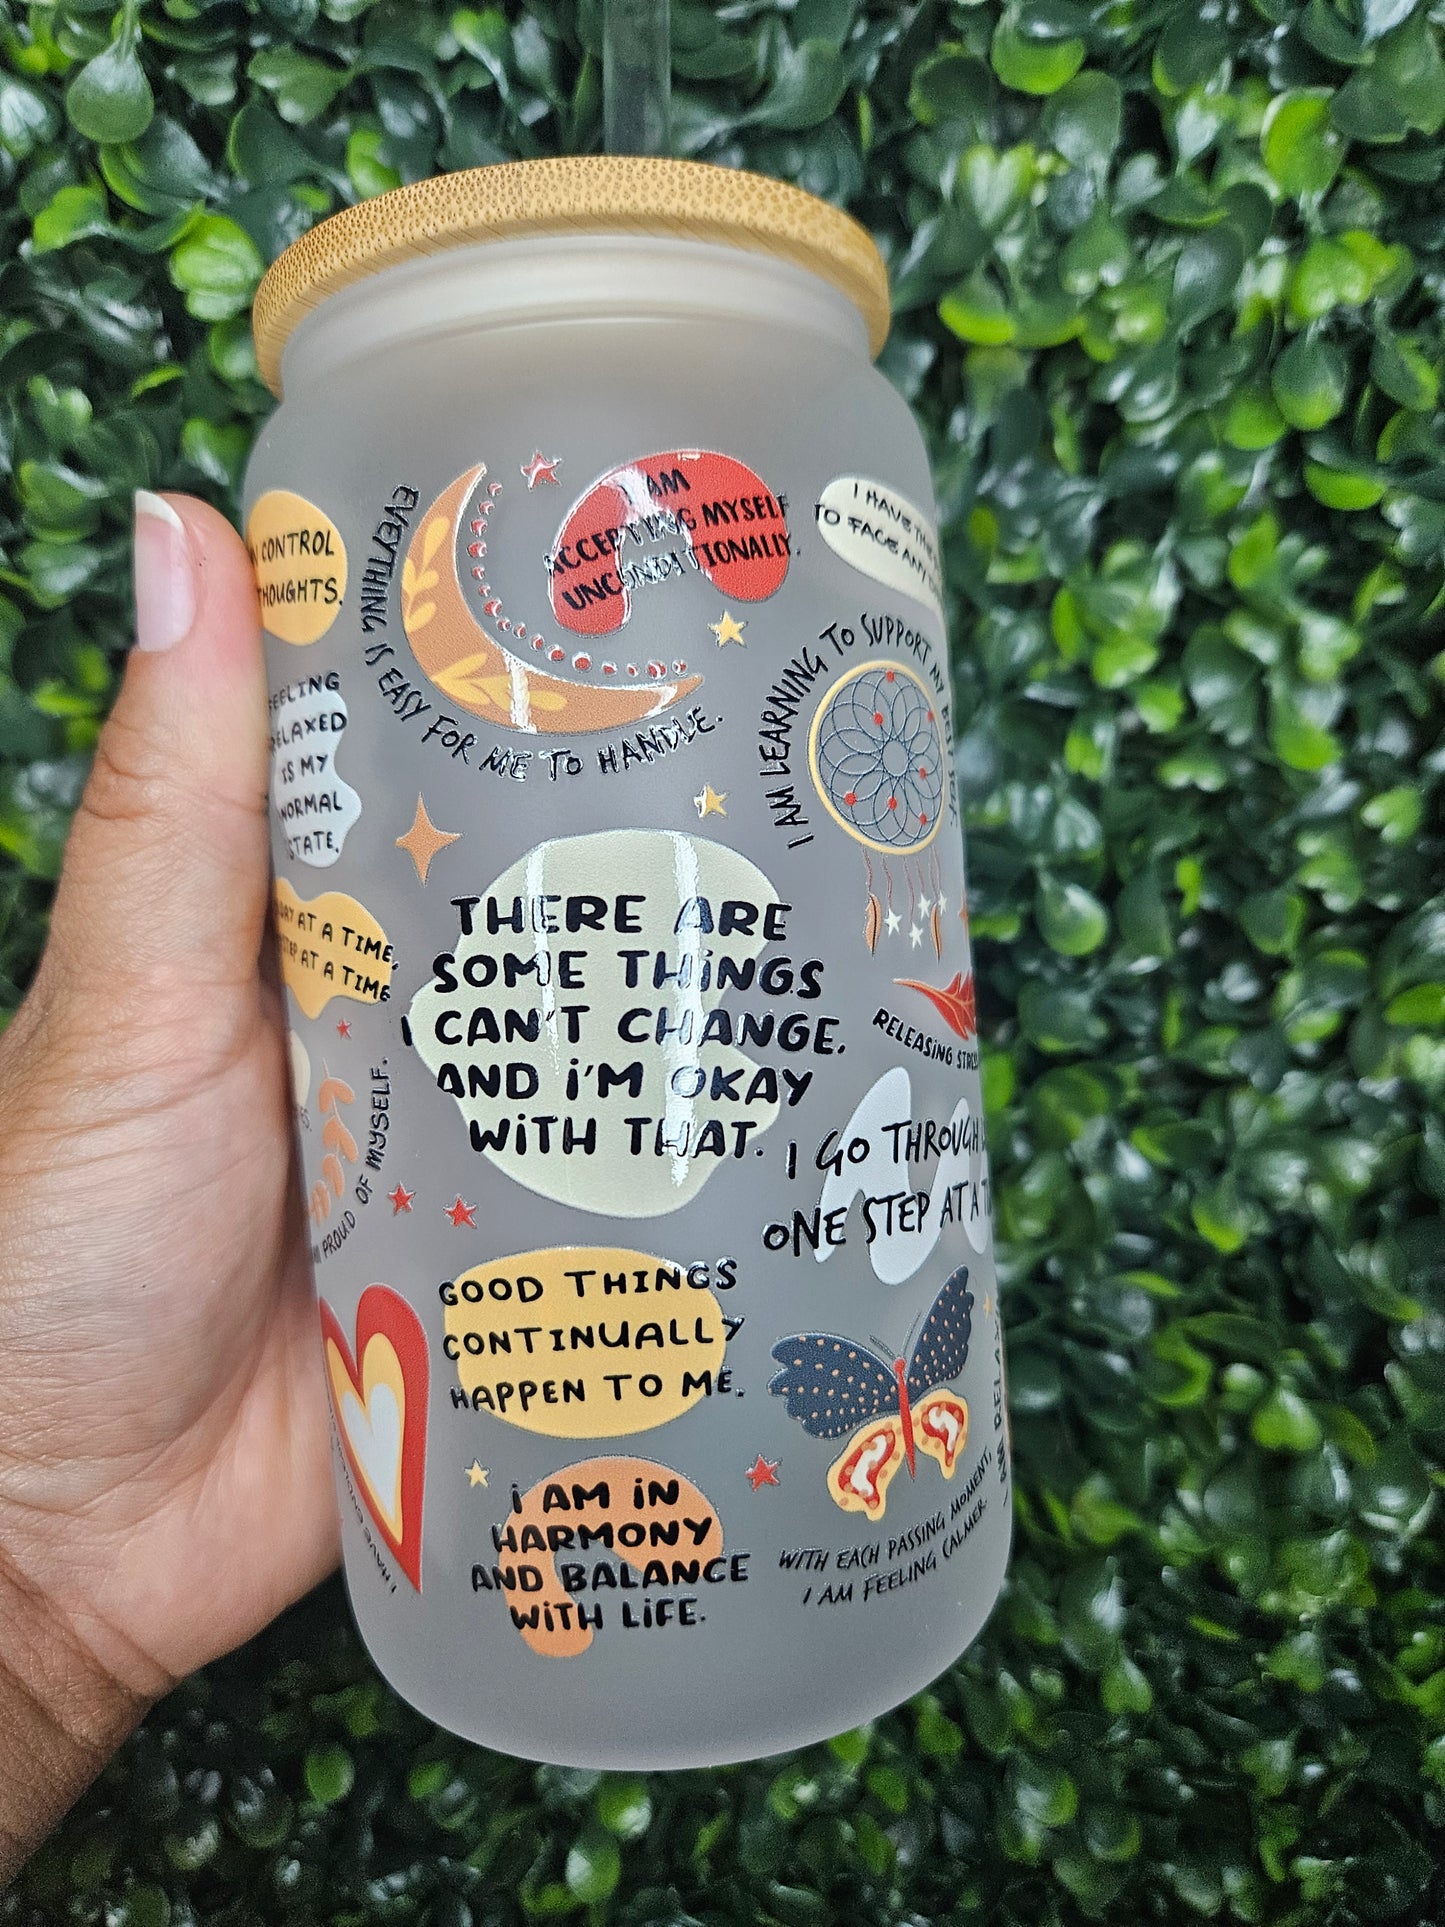 CONTROL
THOUGHTS.
EVERYTHING IS EASY FOR ME TO HANDLE.
I AM
ACCEPTING MYSELF
UNCONDITIONALLY.
I HAVE
TO FACE
I AM LEARNING TO SUPPORT MY BEST SELF
FEELING
RELAXED
IS MY
NORMAL
STATE.
DAY AT A TIME,
STEP AT A TIME
THERE ARE
SOME THiNGS
I CAN'T CHANGE.
AND i'M OKAY
WiTH THAT.
RELEASiNG STRESS
PROUD OF MYSELF.
I GO THROUGH
ONE STEP AT A
GOOD THINGS
CONTINUALLY
HAPPEN TO ME.
I HAVE
i AM iN
HARMONY
AND BALANCE
WiTH LiFE.
WITH EACH PASSING MOMENT,
I AM FEELING CALMER.